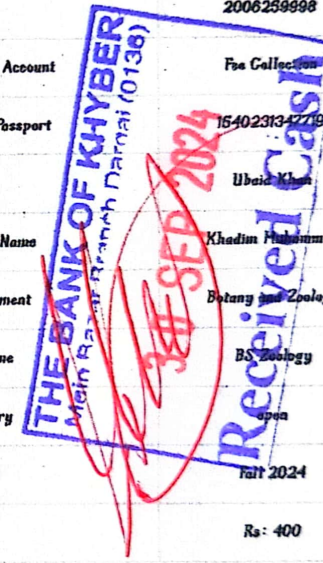 2006259998
Account Fee Collection
Passport
Ubaid Khan
Name Khadim Muhamm
ment Botany and Zoolo
me BS Zoology
ry open
Fall 2024
Rs: 400
THE BANK OF KHYBER
Branch (0136)
SEP 2024
Received Cash